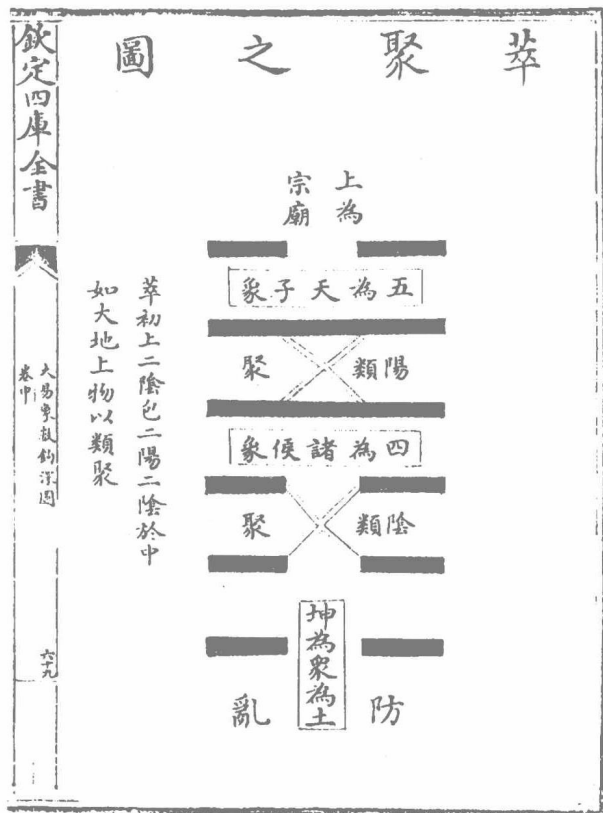 萃聚之圖
上為
宗廟
五為天子象
陽類
聚
四為諸侯象
陰類
聚
坤為衆為土
防
亂
萃初上二陰包二陽二陰於中
如大地上物以類聚
欽定四庫全書
大易象數鈎深圖
卷中
六十九